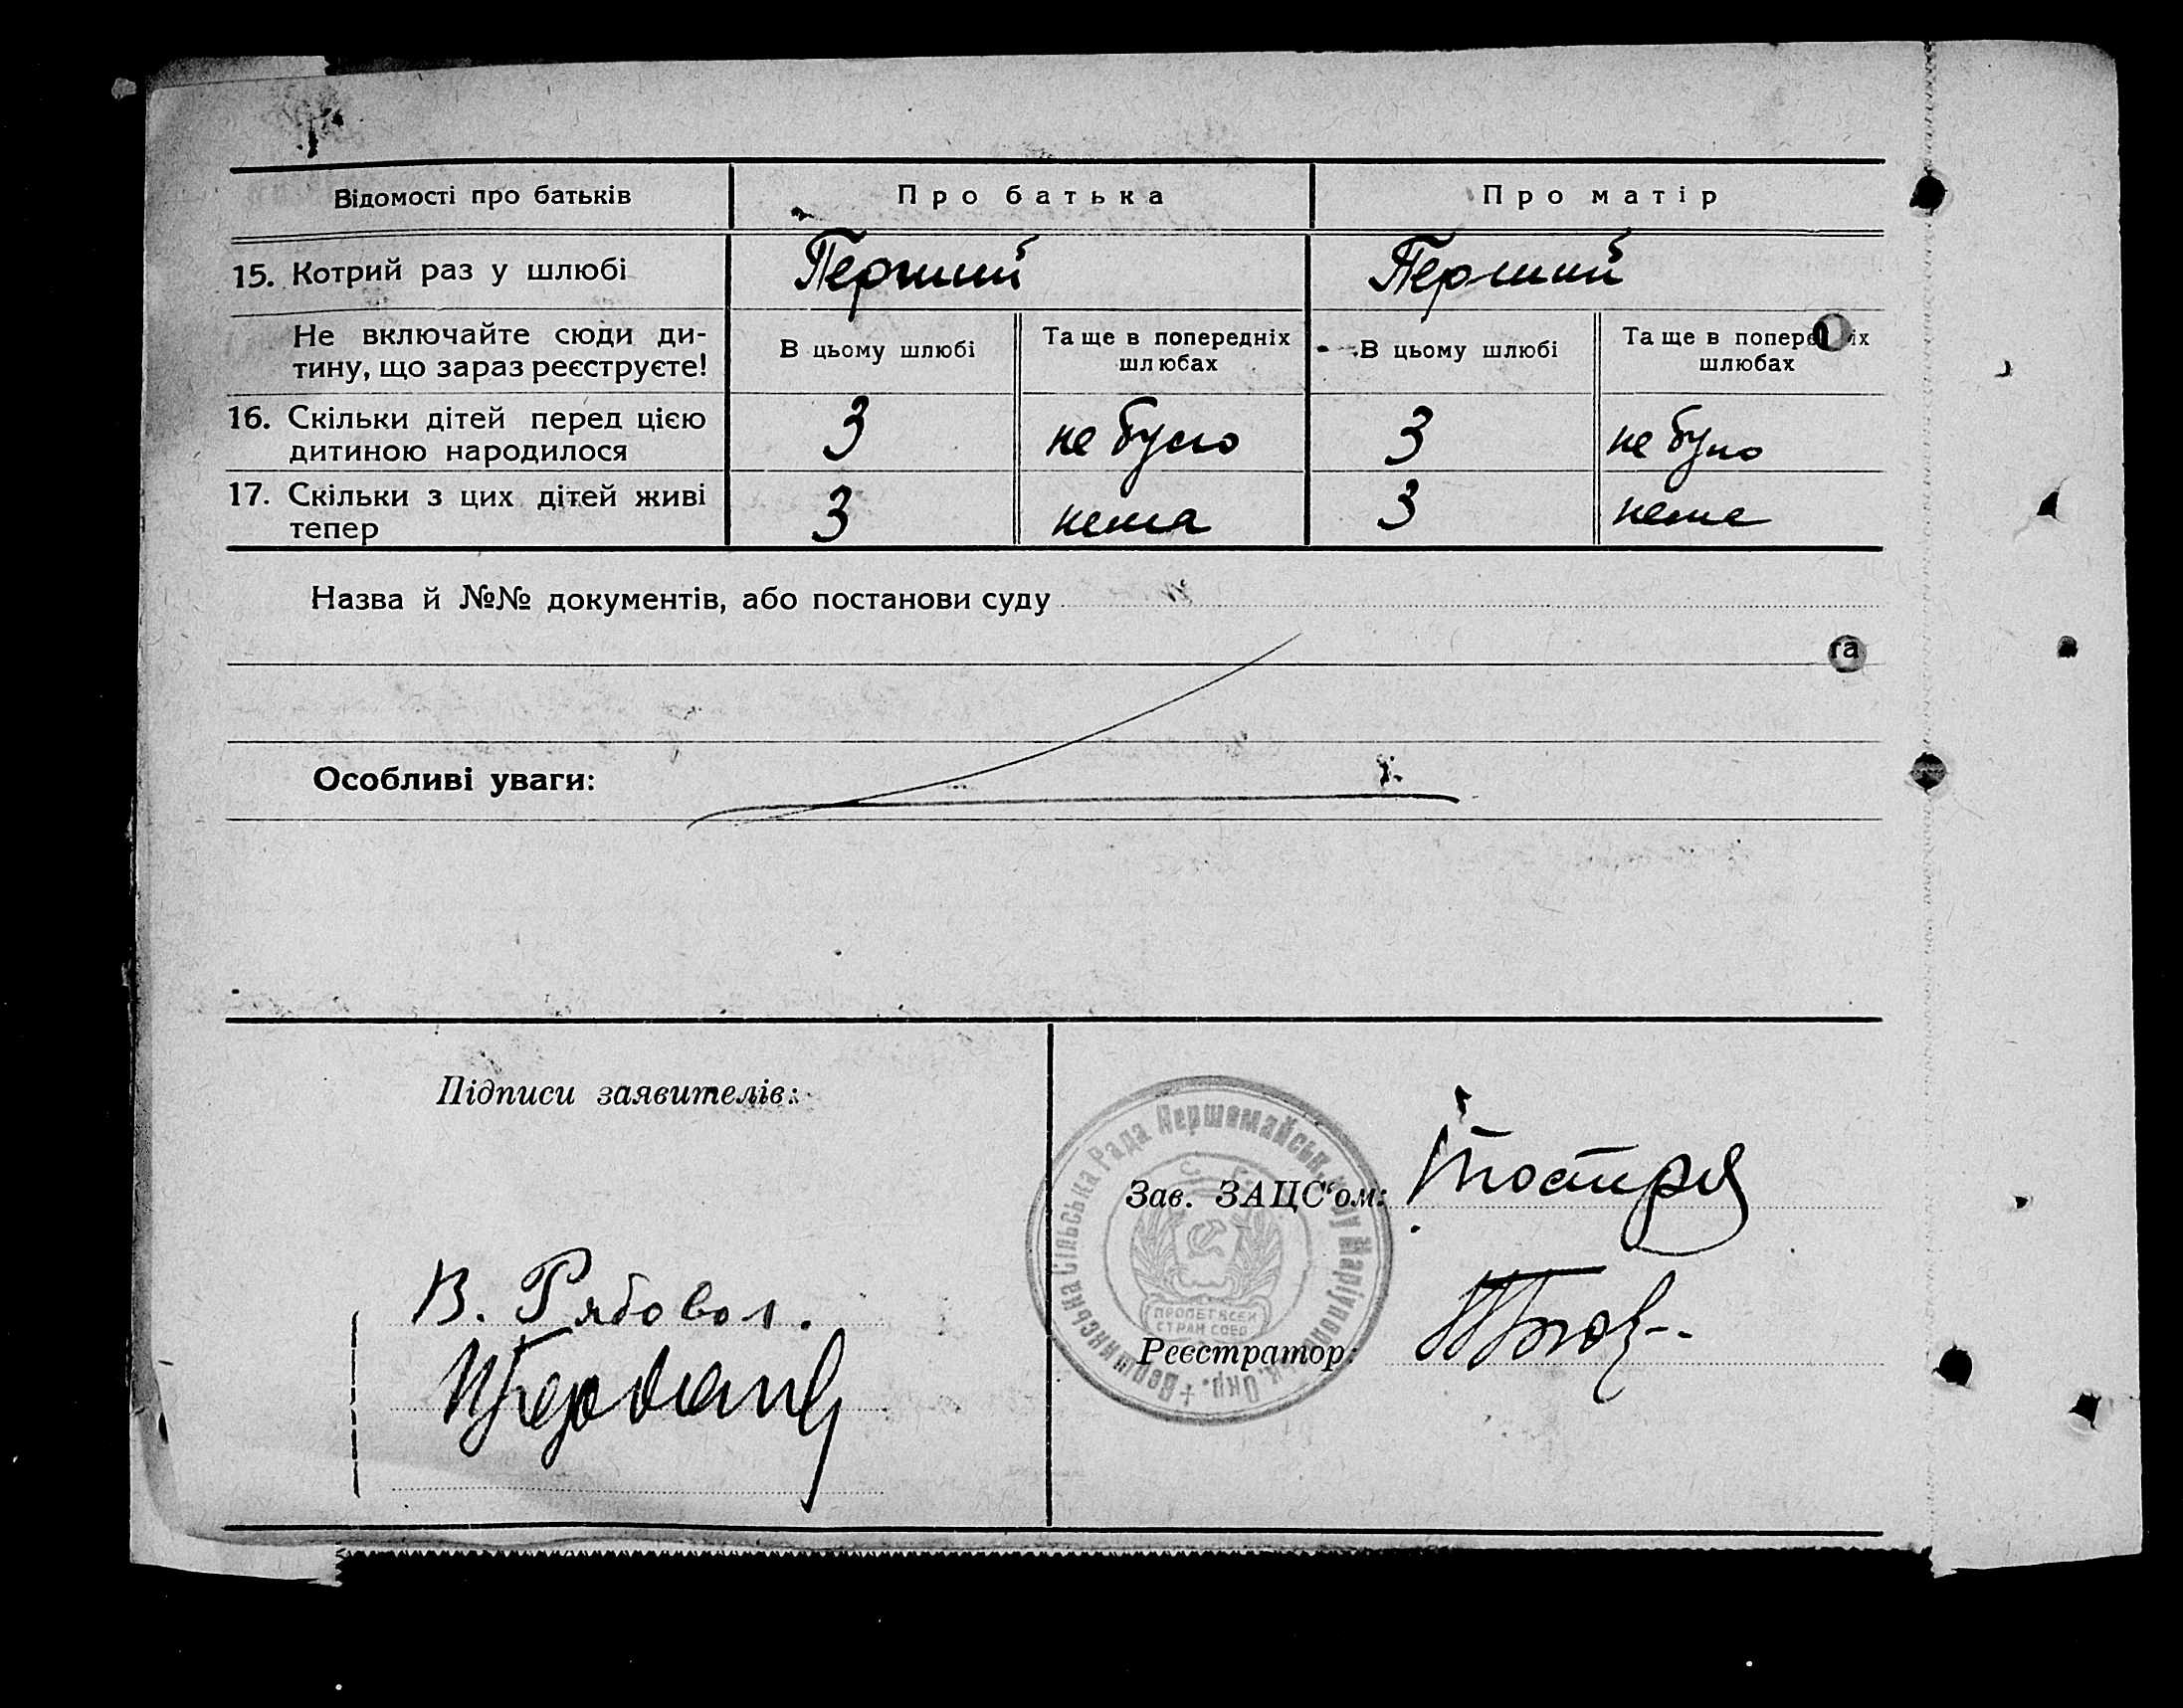 Відомості про батьків
Про батька
Про матір
15. Котрий раз у шлюбі
Перший
Перший
Не включайте сюди ди-
тину, що зараз реєструєте!
В цьому шлюбі
Та ще в попередніх
шлюбах
В цьому шлюбі
Та ще в попере іх
шлюбах
16. Скільки дітей перед цією
дитиною народилося
3
не було
3
не було
17. Скільки з цих дітей живі
тепер
3
нема
3
нема
Назва й №№ документів, або постанови суду
га
Особливі уваги:
Підписи заявителів:
В. Рябовол.
Зав. ЗАЦС'ом:
Реєстратор:
Вершинська Сільська Рада Першомайськ. р-ну Маріупольськ. Окр.
ПРОЛЕТ ВСЕИ
СТРАН СОЕД